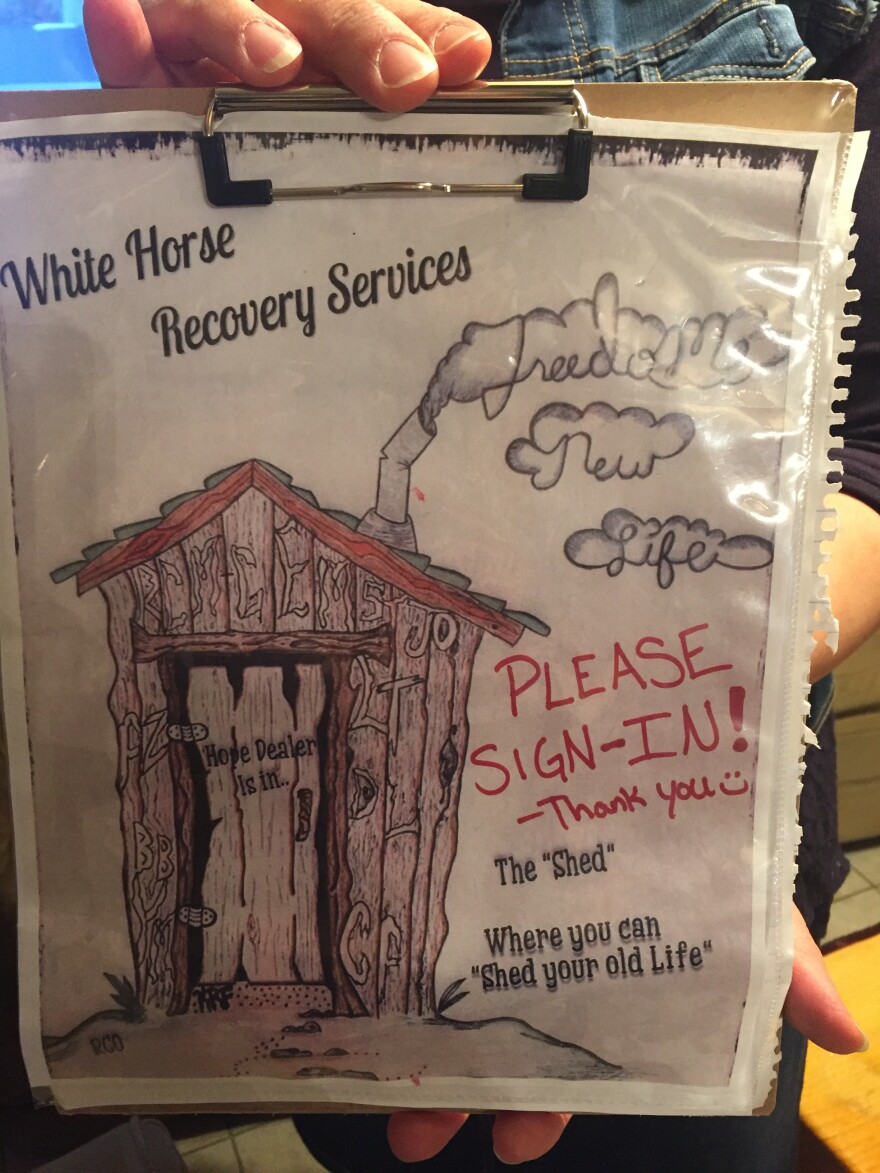 White Horse
Recovery Services
Freedom
New
Life
PLEASE
SIGN-IN!
-Thank you
Hope Dealer
Is in..
The "Shed"
Where you can
"Shed your old Life"
JO
LT
AZ
BB
RCO